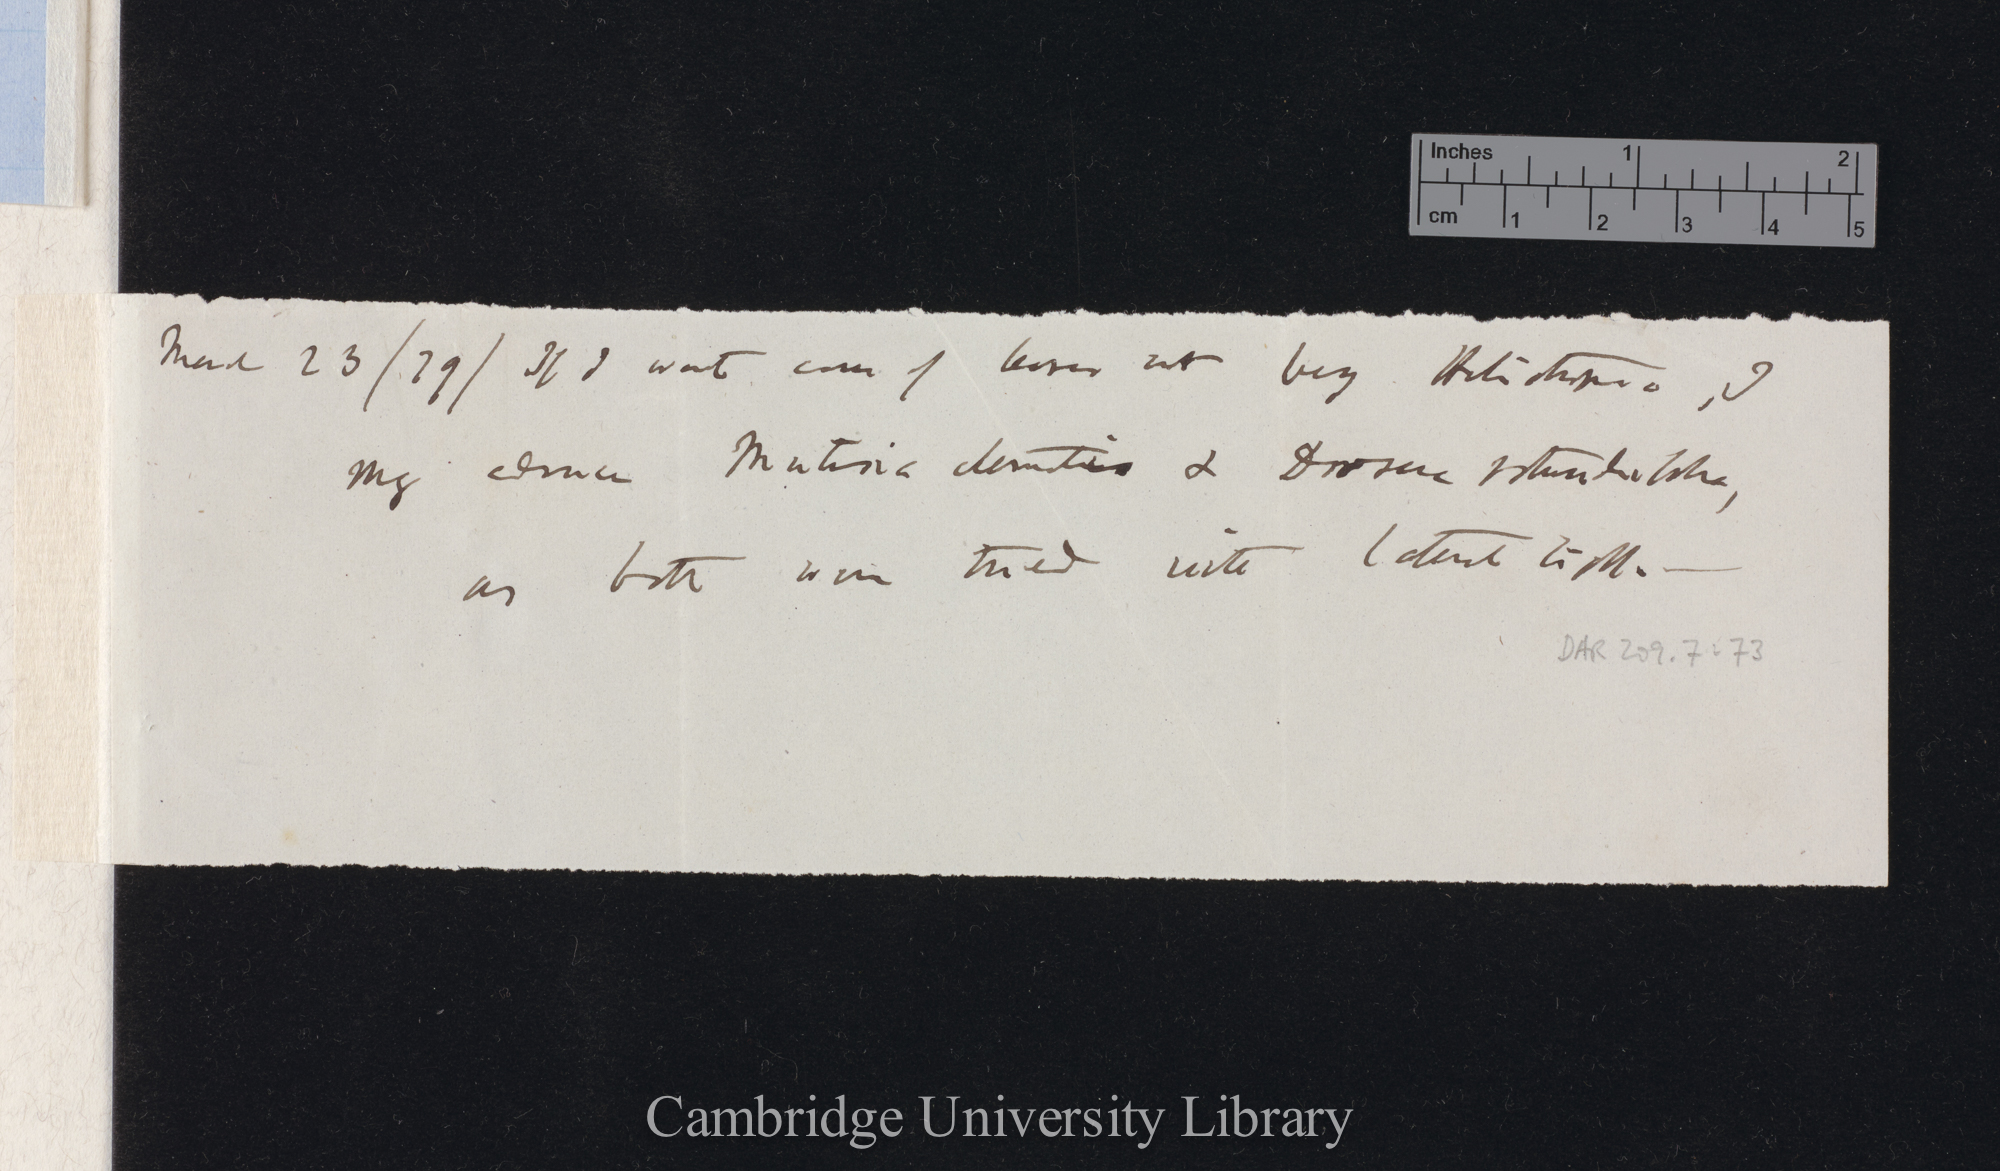 Inches 1 2
cm 1 2 3 4 5
March 23/79/ If I want cases of leaves not being Heliotropic, I
may advance Mutisia clematis & Drosera rotundifolia,
as both were tried with lateral light.—
DAR 209.7:73
Cambridge University Library